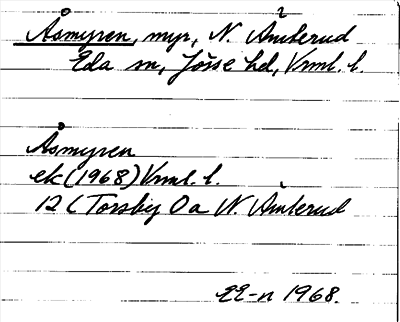 Åsmyren, myr, N. Åmterud
Eda sn, Jösse hd, Vrml. l.
Åsmyren
ek (1968) Vrml. l.
12 C Torsby 0a N. Åmterud
EE-n 1968.